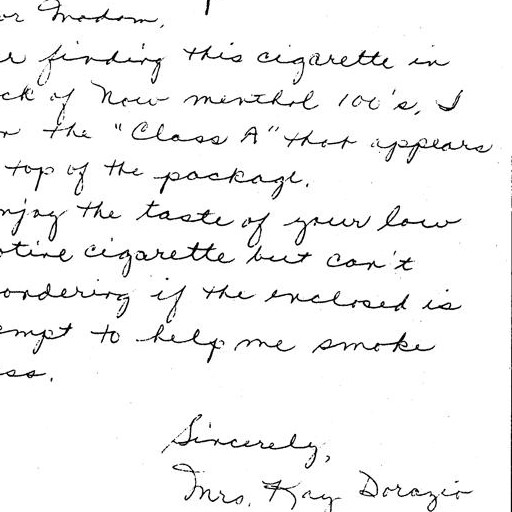 or Madam,
r finding this cigarette in
ck of Now menthol 100's, I
the "Class A" that appears
top of the package.
njoy the taste of your low
otine cigarette but can't
ondering if the enclosed is
empt to help me smoke
ss.
Sincerely,
Mrs. Kay Dorazio